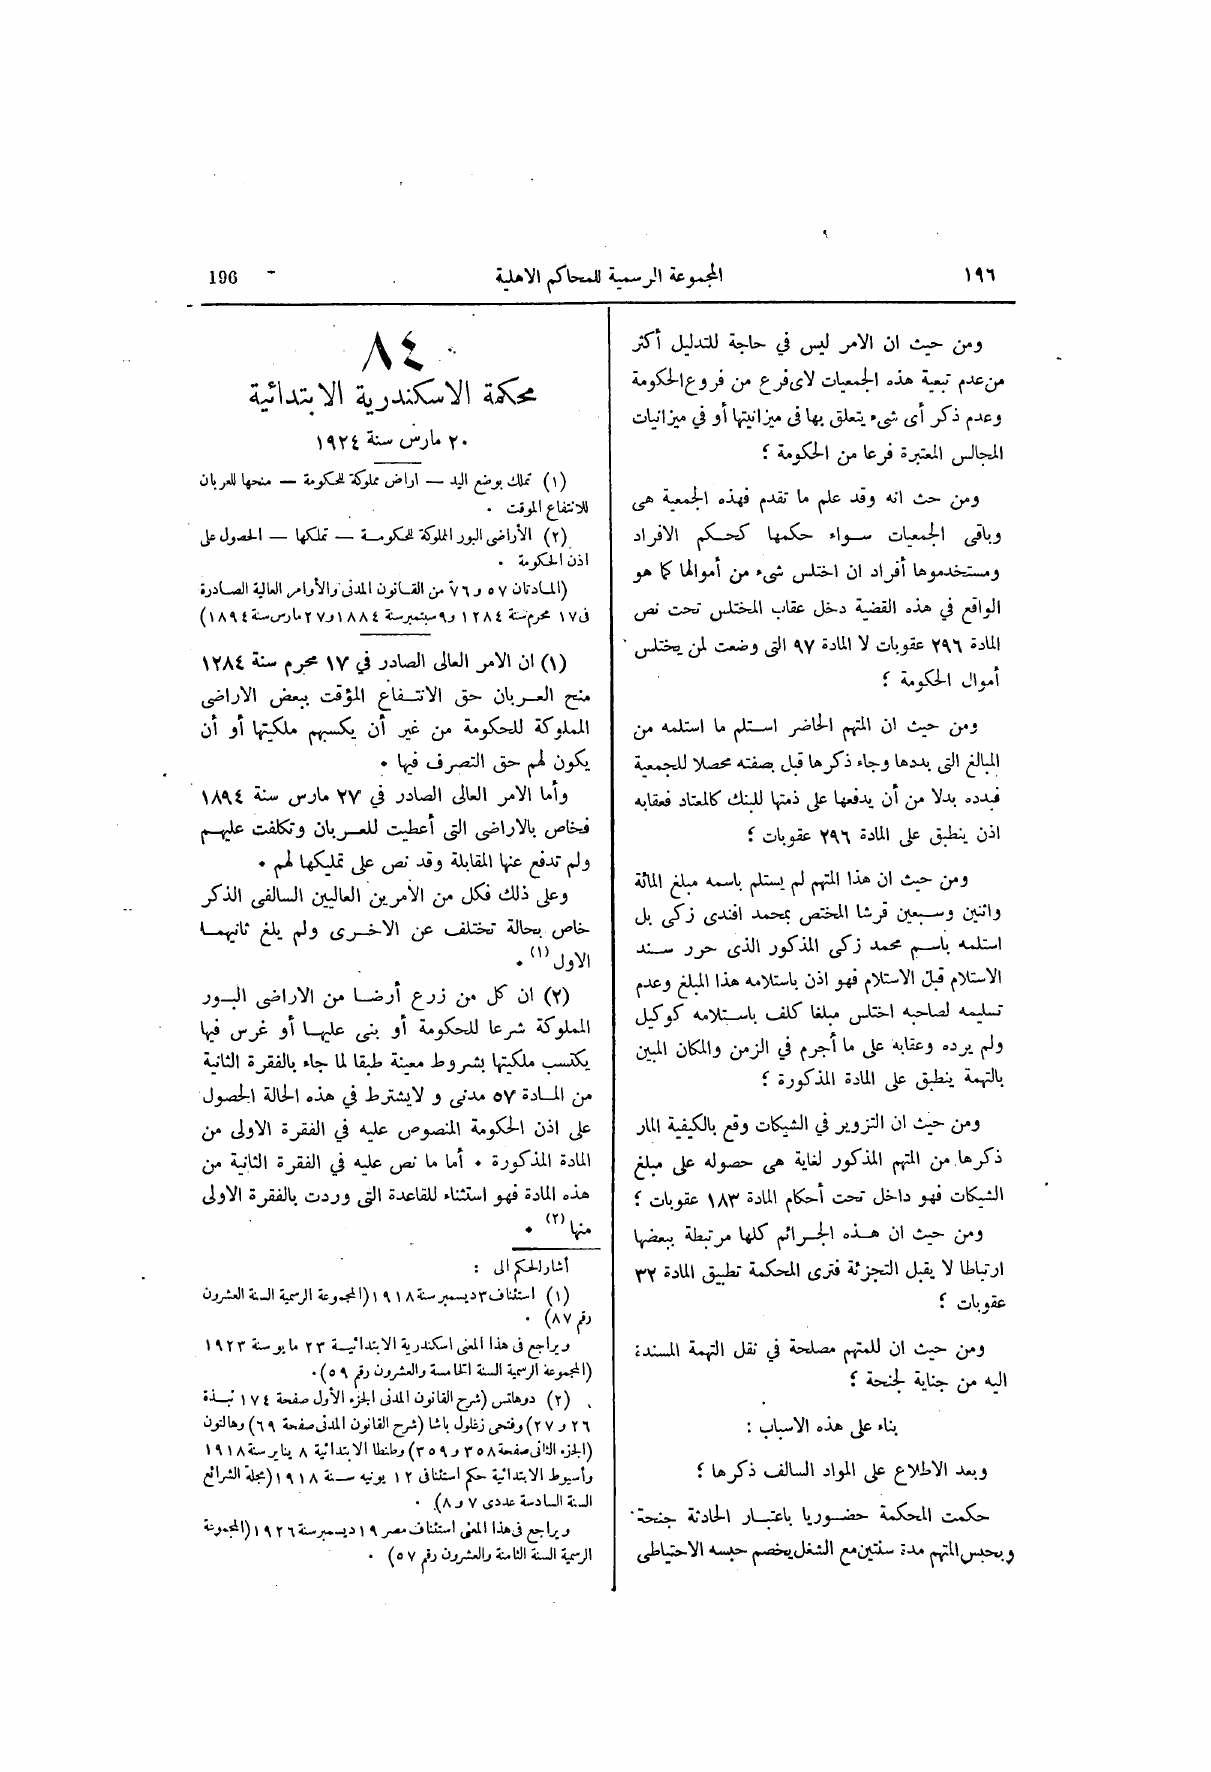 ١٩٦ المجموعة الرسمية للمحاكم الاهلية 196
ومن حيث ان الامر ليس في حاجة للتدليل أكثر
من عدم تبعية هذه الجمعيات لاى فرع من فروع الحكومة
وعدم ذكر أى شىء يتعلق بها فى ميزانيتها أو في ميزانيات
المجالس المعتبرة فرعا من الحكومة ؛
ومن حث انه وقد علم ما تقدم فهذه الجمعية هى
وباقى الجمعيات سواء حكمها كحكم الافراد
ومستخدموها أفراد ان اختلس شىء من أموالها كما هو
الواقع في هذه القضية دخل عقاب المختلس تحت نص
المادة ٢٩٦ عقوبات لا المادة ٩٧ التى وضعت لمن يختلس
أموال الحكومة ؛
ومن حيث ان المتهم الحاضر استلم ما استلمه من
المبالغ التى بددها وجاء ذكرها قبل بصفته محصلا للجمعية
فبدده بدلا من أن يدفعها على ذمتها للبنك كالمعتاد فعقابه
اذن ينطبق على المادة ٢٩٦ عقوبات ؛
ومن حيث ان هذا المتهم لم يستلم باسمه مبلغ المائة
واثنين وسبعين قرشا المختص بمحمد افندى زكى بل
استلمه باسم محمد زكى المذكور الذى حرر سند
الاستلام قبل الاستلام فهو اذن باستلامه هذا المبلغ وعدم
تسليمه لصاحبه اختلس مبلغا كلف باستلامه كوكيل
ولم يرده وعقابه على ما أجرم في الزمن والمكان المبين
بالتهمة ينطبق على المادة المذكورة ؛
ومن حيث ان التزوير في الشيكات وقع بالكيفية المار
ذكرها من المتهم المذكور لغاية هى حصوله على مبلغ
الشيكات فهو داخل تحت أحكام المادة ١٨٣ عقوبات ؛
ومن حيث ان هذه الجرائم كلها مرتبطة ببعضها
ارتباطا لا يقبل التجزئة فترى المحكمة تطبيق المادة ٣٢
عقوبات ؛
ومن حيث ان للمتهم مصلحة في نقل التهمة المسندة
اليه من جناية لجنحة ؛
بناء على هذه الاسباب :
وبعد الاطلاع على المواد السالف ذكرها ؛
حكمت المحكمة حضوريا باعتبار الحادثة جنحة
وبحبس المتهم مدة سنتين مع الشغل يخصم حبسه الاحتياطى
٨٤
محكمة الاسكندرية الابتدائية
٢٠ مارس سنة ١٩٢٤
(١) تملك بوضع اليد — اراض مملوكة للحكومة — منحها للعربان
للانتفاع الموقت .
(٢) الأراضى البور المملوكة للحكومة — تملكها — الحصول على
اذن الحكومة .
(المادتان ٥٧ و ٧٦ من القانون المدنى والأوامر العالية الصادرة
فى ١٧ محرم سنة ١٢٨٤ و ٩ سبتمبر سنة ١٨٨٤ و ٢٧ مارس سنة ١٨٩٤)
(١) ان الامر العالى الصادر في ١٧ محرم سنة ١٢٨٤
منح العربان حق الانتفاع المؤقت ببعض الاراضى
المملوكة للحكومة من غير أن يكسبهم ملكيتها أو أن
يكون لهم حق التصرف فيها .
وأما الامر العالى الصادر في ٢٧ مارس سنة ١٨٩٤
فخاص بالاراضى التى أعطيت للعربان وتكلفت عليهم
ولم تدفع عنها المقابلة وقد نص على تمليكها لهم .
وعلى ذلك فكل من الأمرين العاليين السالفى الذكر
خاص بحالة تختلف عن الاخرى ولم يلغ ثانيهما
الاول (١) .
(٢) ان كل من زرع أرضا من الاراضى البور
المملوكة شرعا للحكومة أو بنى عليها أو غرس فيها
يكتسب ملكيتها بشروط معينة طبقا لما جاء بالفقرة الثانية
من المادة ٥٧ مدنى و لا يشترط في هذه الحالة الحصول
على اذن الحكومة المنصوص عليه في الفقرة الاولى من
المادة المذكورة . أما ما نص عليه في الفقرة الثانية من
هذه المادة فهو استثناء للقاعدة التى وردت بالفقرة الاولى
منها (٢) .
أشار الحكم الى :
(١) استئناف ٣ ديسمبر سنة ١٩١٨ (المجموعة الرسمية السنة العشرون
رقم ٨٧) .
ويراجع فى هذا المعنى اسكندرية الابتدائية ٢٣ مايو سنة ١٩٢٣
(المجموعة الرسمية السنة الخامسة والعشرون رقم ٥٩).
(٢) دوهلتس (شرح القانون المدنى الجزء الأول صفحة ١٧٤ نبذة
٢٦ و ٢٧) وفتحى زغلول باشا (شرح القانون المدنى صفحة ٦٩) وهالتون
(الجزء الثانى صفحة ٣٥٨ و ٣٥٩) وطنطا الابتدائية ٨ يناير سنة ١٩١٨
وأسيوط الابتدائية حكم استئنافى ١٢ يونيه سنة ١٩١٨ (مجلة الشرائع
السنة السادسة عددى ٧ و ٨) .
ويراجع فى هذا المعنى استئناف مصر ١٩ ديسمبر سنة ١٩٢٦ (المجموعة
الرسمية السنة الثامنة والعشرون رقم ٥٧) .